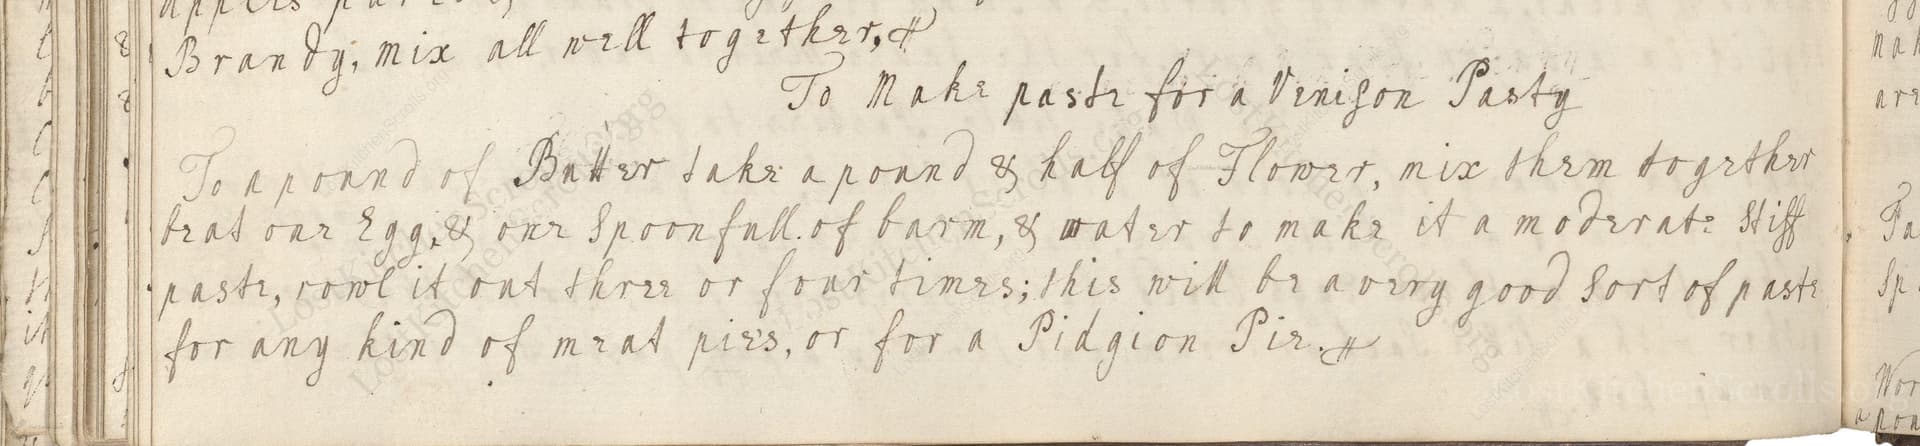 Brandy, mix all well together,
To Make paste for a Venison Pasty
To a pound of Butter take a pound & half of Flower, mix them together
beat one Egg, & one Spoonfull. of barm, & water to make it a moderate Stiff
paste, rowl it out three or four times; this will be a very good Sort of paste
for any kind of meat pies, or for a Pidgion Pie.
LostKitchenScrolls.org